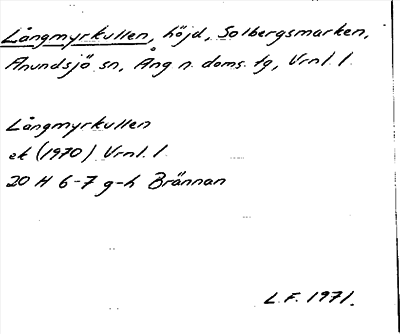 Långmyrkullen, höjd, Solbergsmarken,
Anundsjö sn, Ång n. doms. tg, Vrnl. l.
Långmyrkullen
ek (1970) Vrnl. l.
20 H 6-7 g-h Brännan
L.F. 1971.